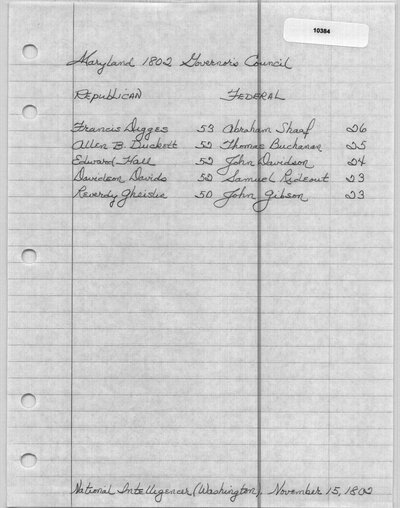 10384
Maryland 1802 Governors Council
REPUBLICAN FEDERAL
Francis Digges 53 Abraham Shaaf 26
Allen B. Duckett 52 Thomas Buchanan 25
Edward Hall 52 John Davidson 24
Davidson Davids 52 Samuel Rideout 23
Reverdy Gheislin 50 John Gibson 23
National Intelligencer (Washington). November 15, 1802